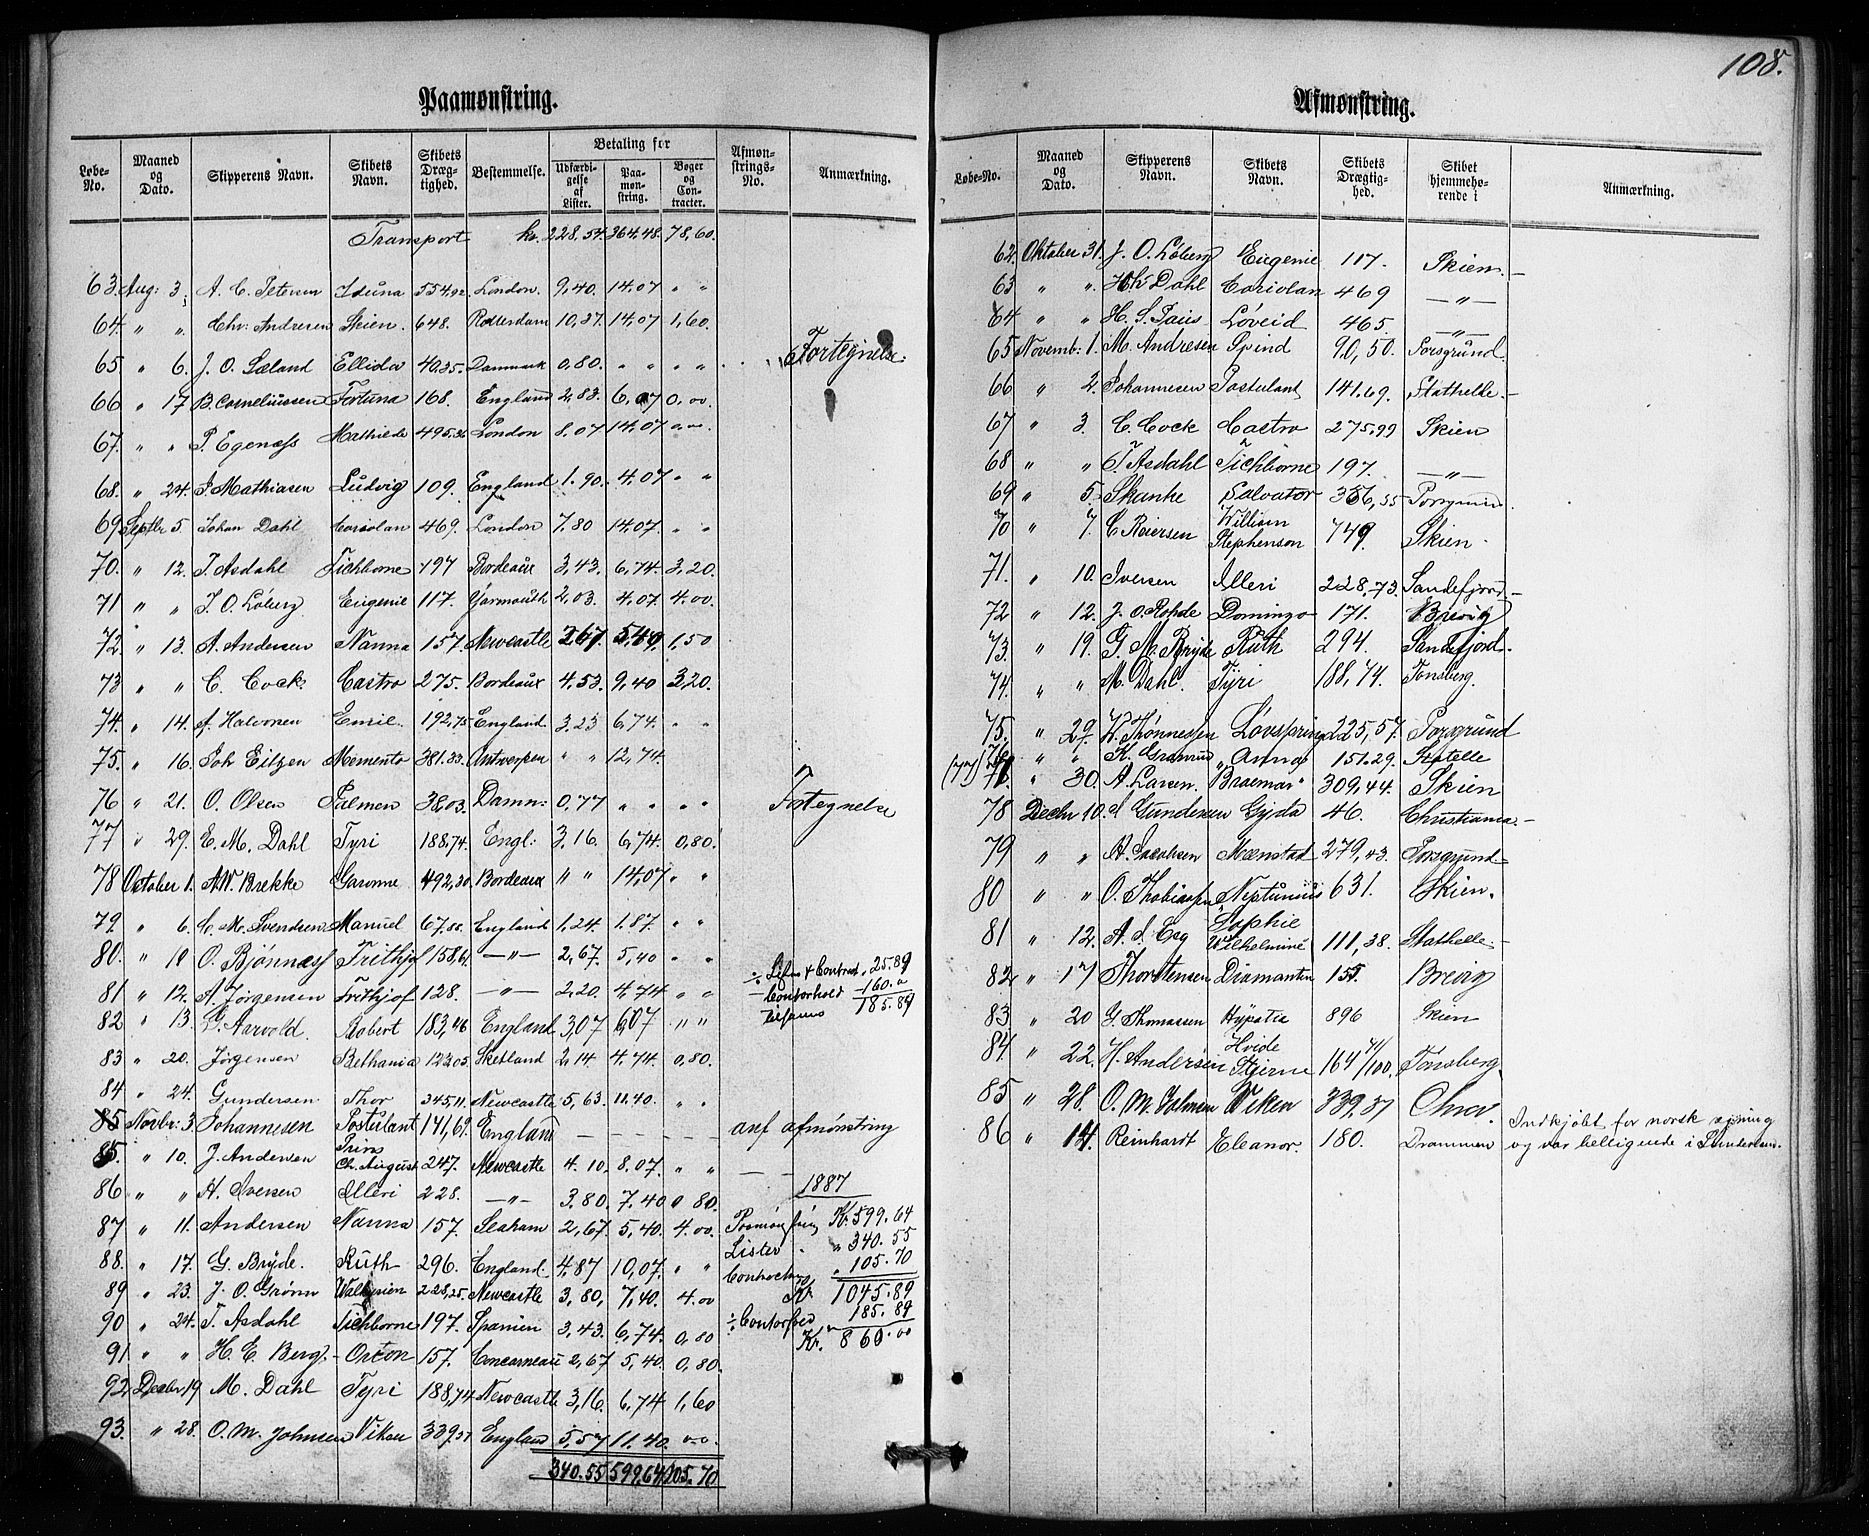 108.
Paamønstring.
Løbe-No. Maaned og Dato. Skipperens Navn. Skibets Navn. Skibets Dræg-tighed. Bestemmelse. Betaling for Udfærdi-gelse af Lister. Paa-mon-string. Bøger og Con-tracter. Afmøn-strings-No. Anmærkning.
Transport kr. 228,54. 364,48. 78,60.
63. Aug: 3. A. C. Petersen Iduna 554,92 London. 9,40. 14,07 " "
64. " ". Chr: Andresen Skien. 648. Rotterdam 10,37. 14,07 1,60.
65 " 6. J. O. Sæland Ellida 40,35. Danmark 0,80. " " " " Fortegnelse.
66 " 17 B. Corneliussen Fortuna 168. England 2,83. 6,07 0,00.
67. " " P. Egenæss Mathilde 495,36 London 8,07 14,07
68. " 24. J. Mathiasen Ludvig 109. England 1.90. 4,07 " "
69 Septbr 5. Johan Dahl Coriolan 469. London 7,80 14,07. " "
70. " 12. T. Asdahl Tichborne 197 Bordeaux 3,43. 6,74. 3,20.
71 " " J. O. Löberg Eugenie 117. Yarmouth 2,03. 4,07. 4.00.
72. " 13. A. Andersen Nanna 157. Newcastle 2,67. 5,40. 1,50
73 " " C. Cock Castro 275. Bordeaux 4,53. 9,40 3,20.
74. " 14. A. Halvorsen Emil. 192,75 England 3,23 6,74. " "
75. " 16. Joh Eitzen Memento 381.33. Antwerpen " " 12,74.
76 " 21. O. Olsen Palmen 38,03. Danm: 0,77 " " " Fortegnelse
77 " 29. E. M. Dahl Tyri 188,74. Engl: 3,16. 6,74. 0,80.
78 October 1. A.W. Brekke Garonne 492,30 Bordeaux " " 14,07 " "
79. " 6. C. M. Svendsen Manuel 67,88. England 1,24. 1,87. " "
80. " 10 O. Bjønnæss Frithjof 158,61. —"— 2,67. 5,40 " "
81 " 12. A. Jørgensen Frithjof 128. —"— 2,20. 4,74 " "
÷ List + Contract. 25.89
— Contorhold 160.0
185.89
82 " 13. Aarvold Robert 183,46 England 3,07 6,07 " "
83 " 20. Jørgensen Bethania 123,05 Shetland 2,14. 4,74. 0,80.
84 " 24. Gundersen Thor 345,11. Newcastle 5,63. 11.40. " "
85 Novbr: 3. Johannesen Postulant 141,69. England — — — — anf afmønstring
85. " 10. J. Andersen Prins Chr. August 247. Newcastle 4.10. 8.07. " " — —
86 " " H. Iversen Illeri 228. —"— 3,80. 7,40 0 80. 1887
87 " 11. Andersen Nanna 157. Seaham 2,67. 5,40. 4.00. Kr. 599.64
88. " 17. G. Bryde. Ruth 296. England 4,87 10,07. " " Lister. " 340.55
" 105.70
89 " 23. J. O. Grönn Walkyrien 228,25. Newcastle 3,80, 7,40. 4.00 Kr. 1045.89
90 " 24. T. Asdahl Tichborne 197. Spanien 3,43. 6,74. 0,80 ÷ Contorhold 185.89
91 " " H. E. Berg. Orion 157. Concarneau 2,67 5,40. 0,80. Kr. 860.00
92 Decbr 19 M. Dahl Tyri 188,74 Newcastle 3,16. 6,74 1,60
93. " 28. O. M. Johnsen Viken 339,37 England 5,57 11.40.
340.55 599,64 105.70
Afmønstring.
Løbe-No. Maaned og Dato. Skipperens Navn. Skibets Navn. Skibets Drægtig-hed. Skibet hjemmehø-rende i Anmærkning.
62. Oktober 31. J. O. Løberg Eugenie 117. Skien.—
63 " ". Dahl Coriolan 469 —"—
64 " " H. S. Paus Løveid 465. —"—
65 Novemb: 1. M. Andresen Spind 90,50. Porsgrund.
66 " 2. Johannesen Postulant 141.69. Stathelle.—
67 " 3. C. Cock Castro 275,99 Skien
68 " " T. Asdahl Tichborne 197. —"—
69 " 5. Skanke Salvator 356,55 Porsgrund.
70 " 7. C. Reiersen William Stephenson 749. Skien.
71. " 10. Iversen Illeri 228,73. Sandefjord—
72 " 12. J. O. Rohde Domingo 171. Brevig
73. " 19. G. M. Bryde Ruth 294. Sandefjord.
74. " " M. Dahl. Tyri 188,74. Tønsberg.
75. " 29. W. Thönnessen Lövspring 225,57. Porsgrund
76 " " K. Gramrud "Anna" 151.29. Statelle
(77) 77. " 30. A. Larsen Braemar" 309,44. Skien
78 Decbr 10. Gundersen Gyda 46. Christiania.—
79 " " A. Jacobsen Mænstad 279,43. Porsgrund—
80 " " O. Thobiassen Neptunus 631. Skien.
81 " 12. A. S. Esq Sophie Wilhelmine 111,38. Stathelle.—
82 " 17 Thorstensen Diamanten 155 Brevig
83 " 20 G. Thomassen Hypatia 896 Skien
84. " 22. H. Andersen Hvide Stjerne 164 71/100. Tønsberg.
85 " 28. O. M. Johnsen Viken 339,37 Chra.
86 " 14. Reinhardt Eleanor. 180. Drammen Indkjøbt for norsk regning og var beliggende i Sunderland.